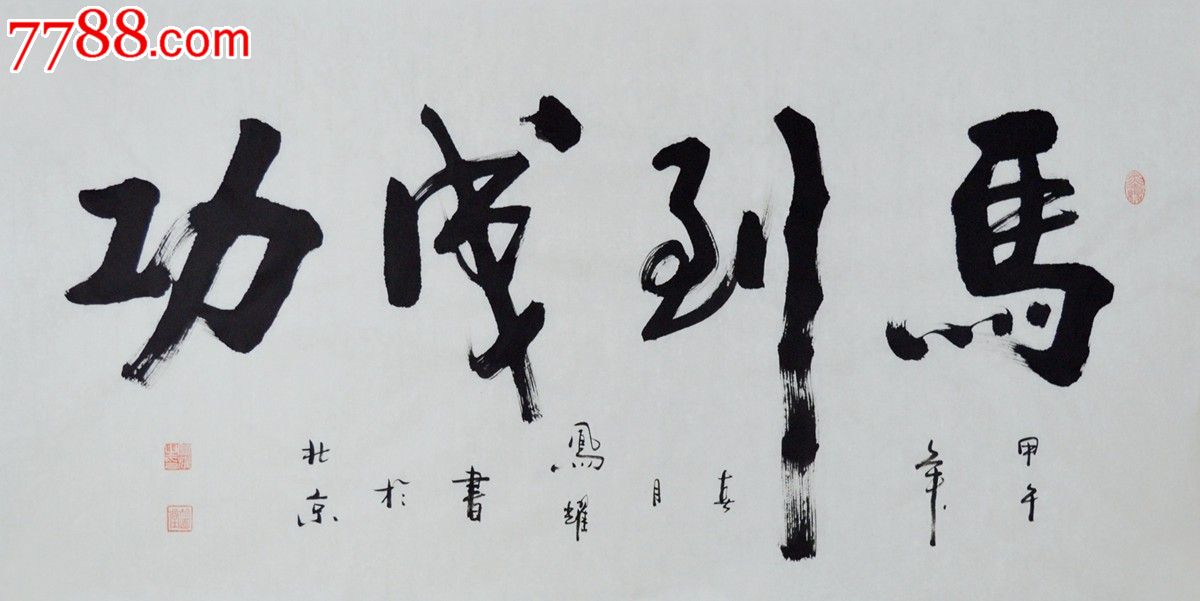 7788.com
馬到成功
甲午年春月鳳耀書於北京